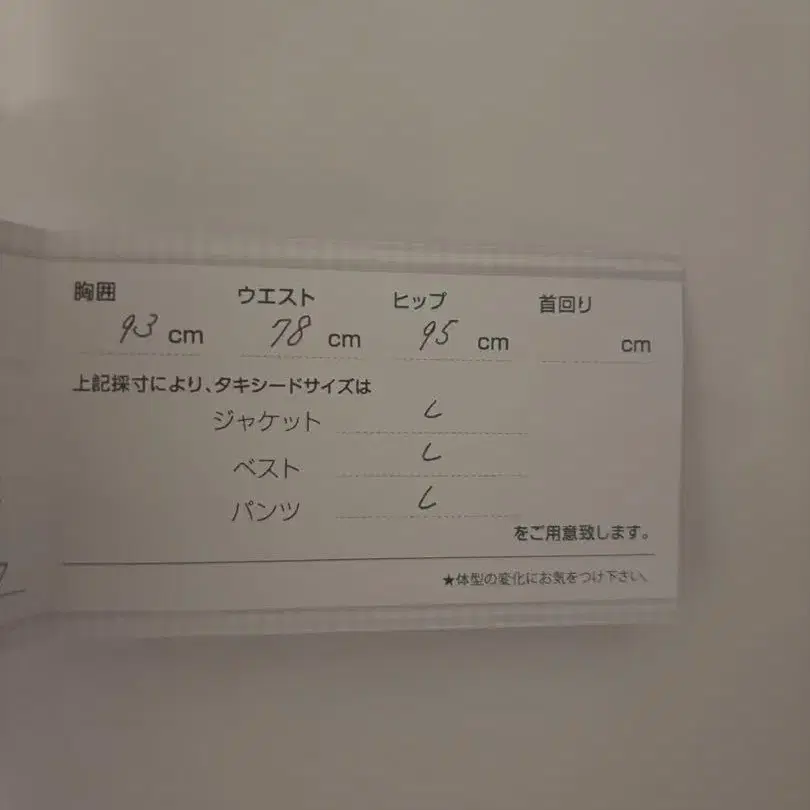 胸囲 ウエスト ヒップ 首回り
93 cm 78 cm 95 cm cm
上記採寸により、タキシードサイズは
ジャケット L
ベスト L
パンツ L
をご用意致します。
★体型の変化にお気をつけ下さい。